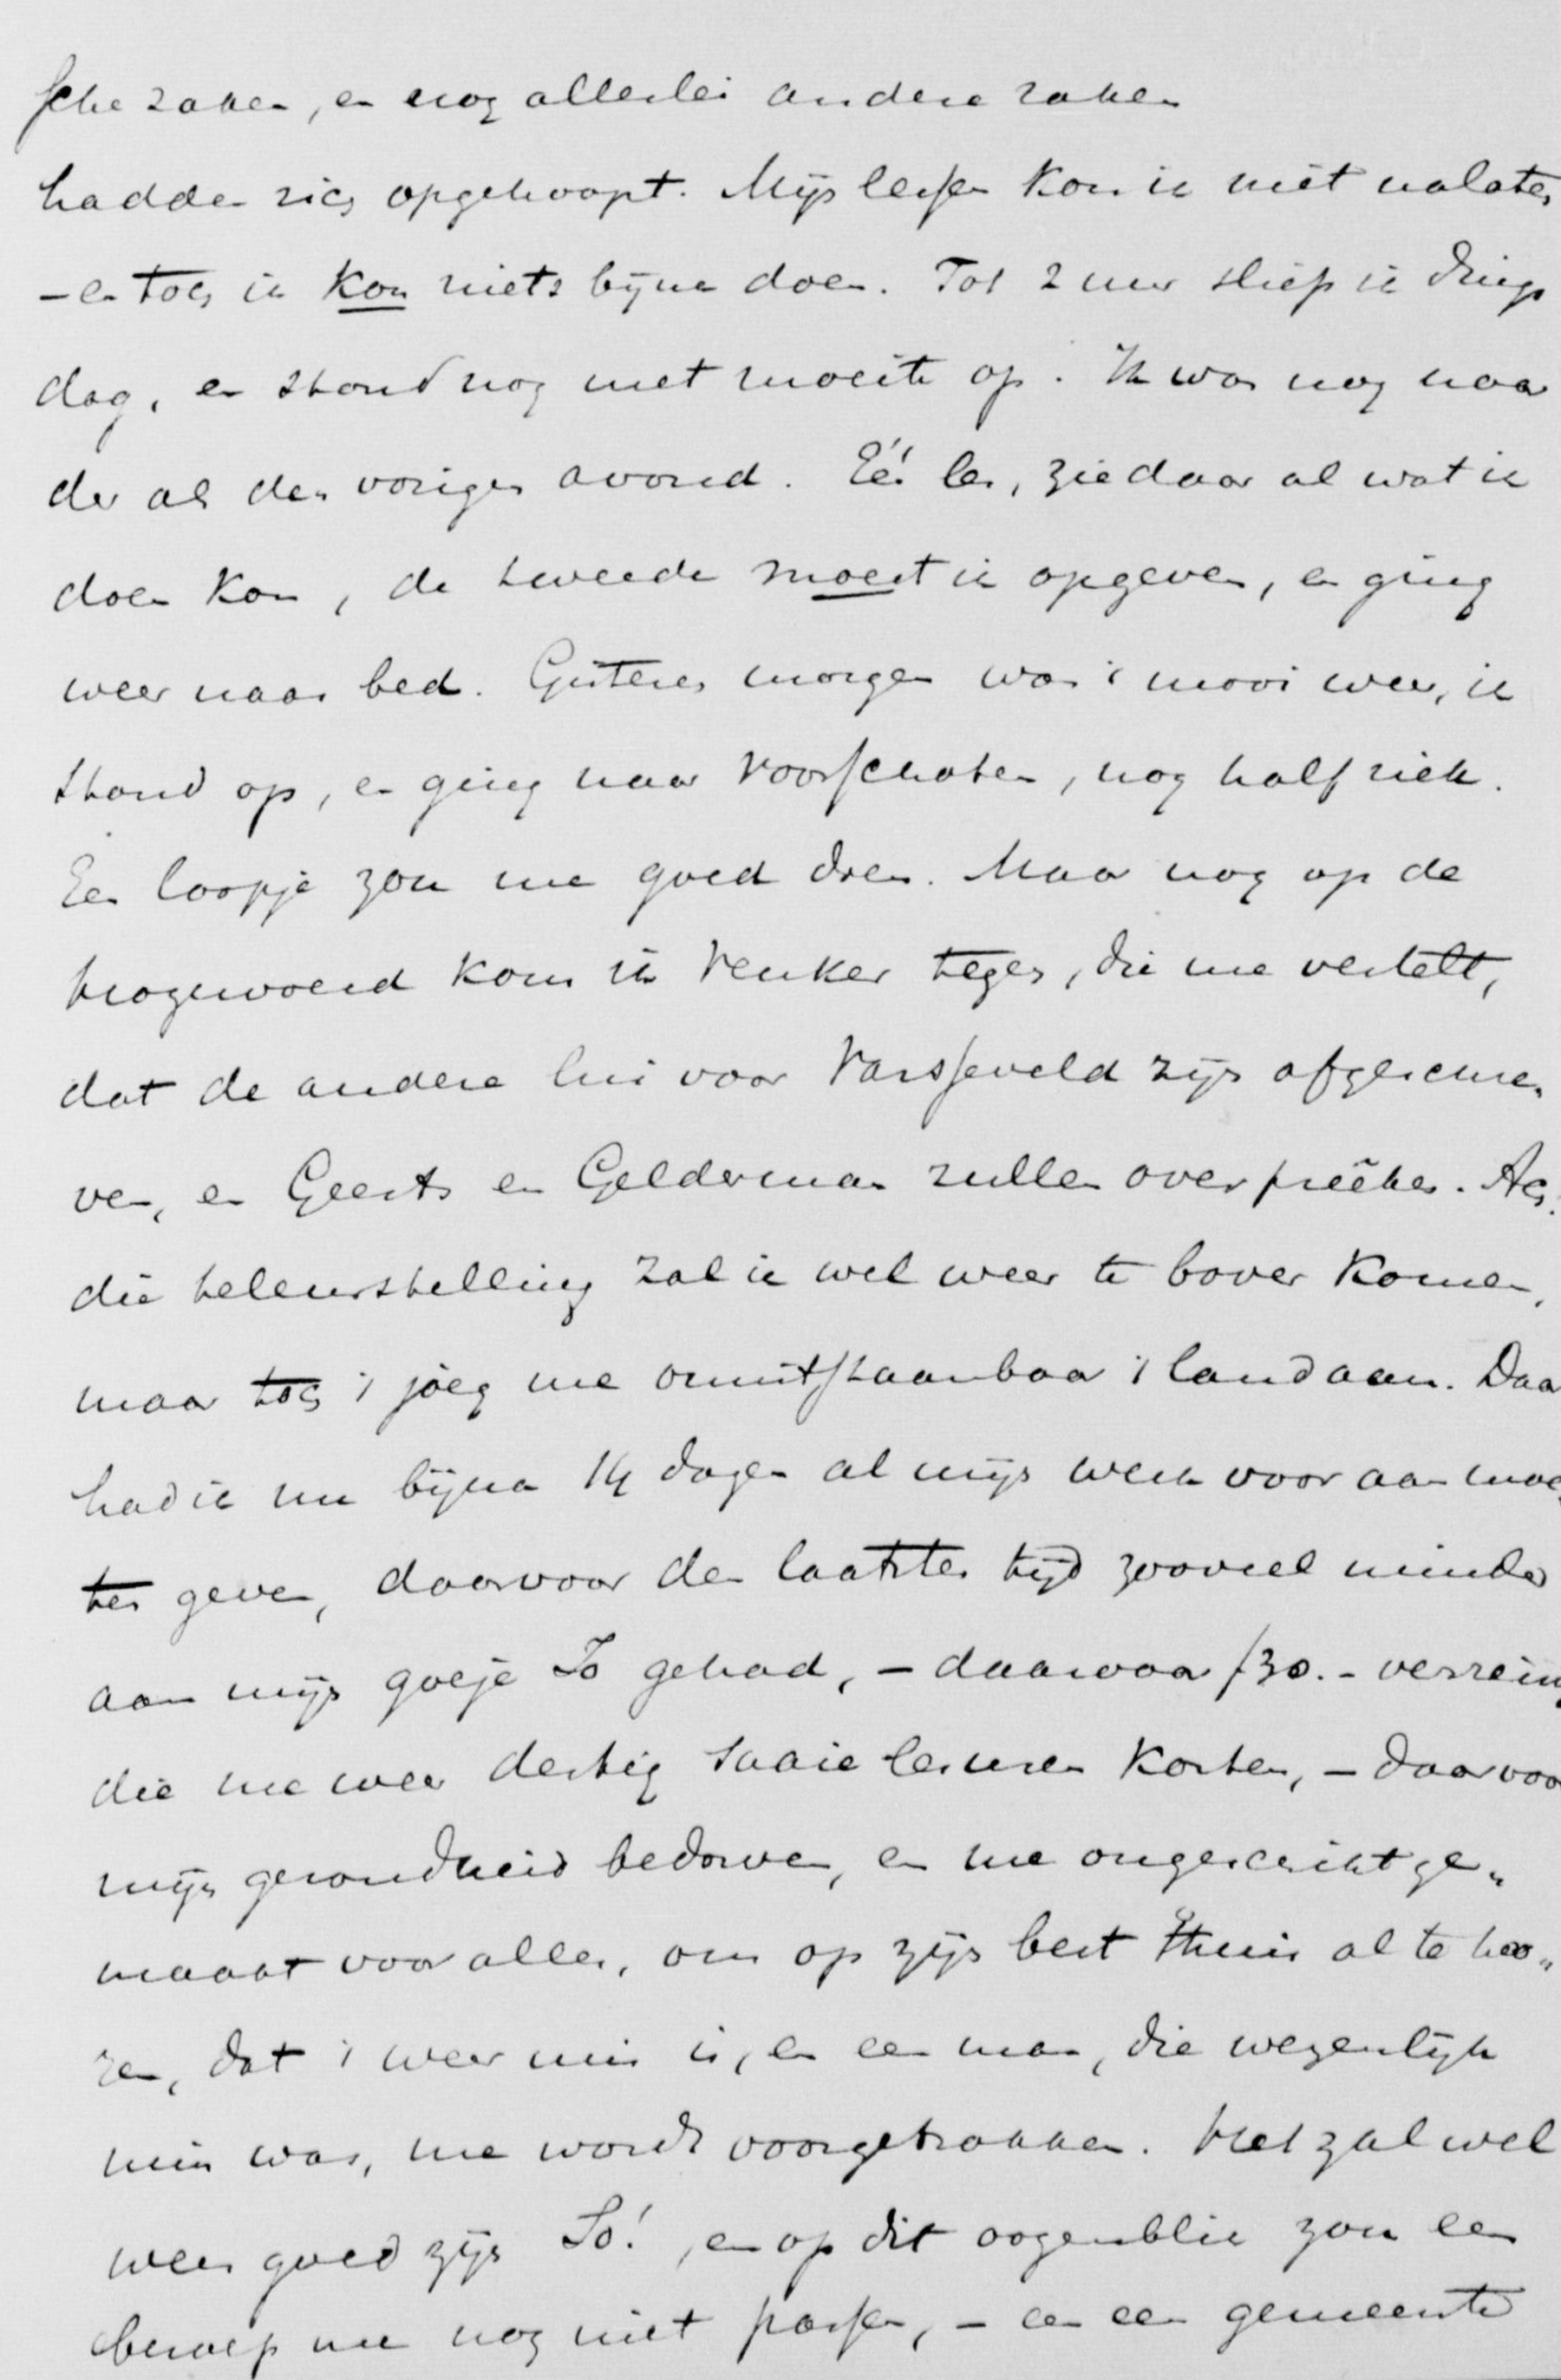 sche zaken, en nog allerlei andere zaken
hadden zich opgehoopt. Mijn lessen kon ik niet nalaten
– en toch ik kon niets bijna doen. Tot 2 uur sliep ik Dings
dag, en stond nog met moeite op. Ik was nog naar
der als den vorigen avond. Eén les, ziedaar al wat ik
doen kon, de tweede moest ik opgeven, en ging
weer naar bed. Gisteren morgen was 't mooi weer, ik
stond op, en ging naar Voorschoten, nog half ziek.
Een loopje zou me goed doen. Maar nog op de
hoogewoerd kom ik Venker tegen, die me vertelt,
dat de andere lui voor Varsseveld zijn afgeschre„
ven, en Geerts en Gelderman zullen overpreêken. Ach!
die teleurstelling zal ik wel weer te boven komen,
maar toch 't joeg me onuitstaanbaar 't land aan. Daar
had ik nu bijna 14 dagen al mijn werk voor aan moe„
ten geven, daarvoor den laatsten tijd zooveel minder
aan mijn goeje Jo gehad, – daarvoor ƒ30.– verreisd,
die me weer dertig saaie lesuren kosten, – daarvoor
mijn gezondheid bedorven, en me ongeschikt ge„
maakt voor alles, om op zijn best thuis al te hoo„
ren, dat 't weer mis is, en een man, die wezenlijk
min was, me wordt voorgetrokken. Het zal wel
weer goed zijn Jo!, en op dit oogenblik zou een
beroep me nog niet passen, – en een gemeente